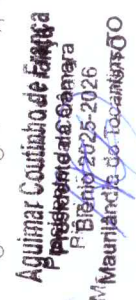 Aguimar Coutinho de França
Presidente da Câmara
Biênio 2025-2026
Maurilândia do Tocantins-TO